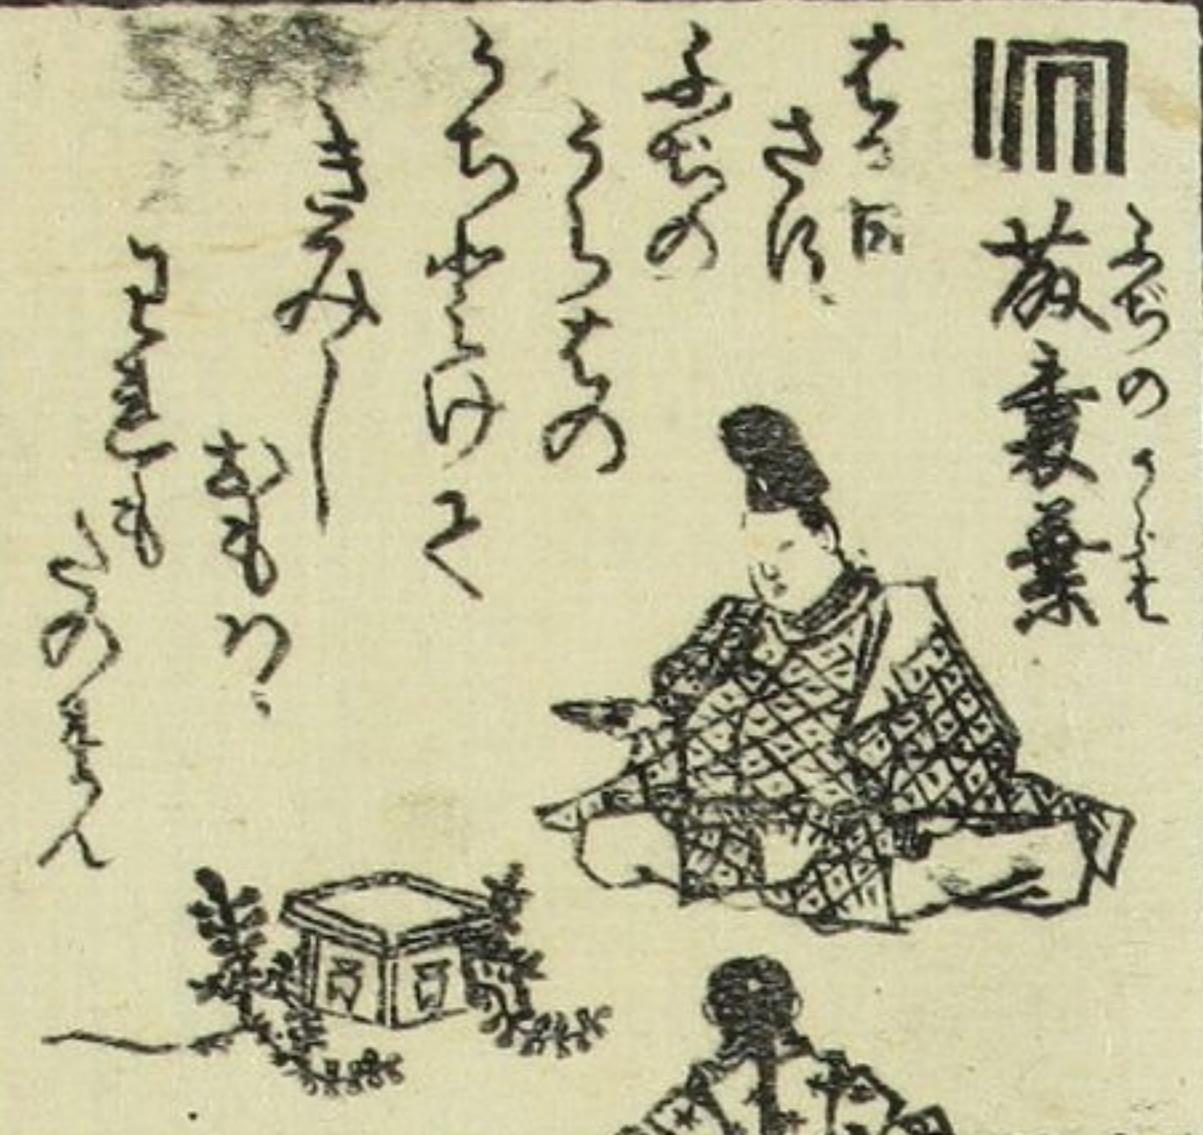 ふぢのうらは
藤裏葉
はる日
さす
ふぢの
うらはの
うちとけて
きみし
おもはゞ
われも
たのまん